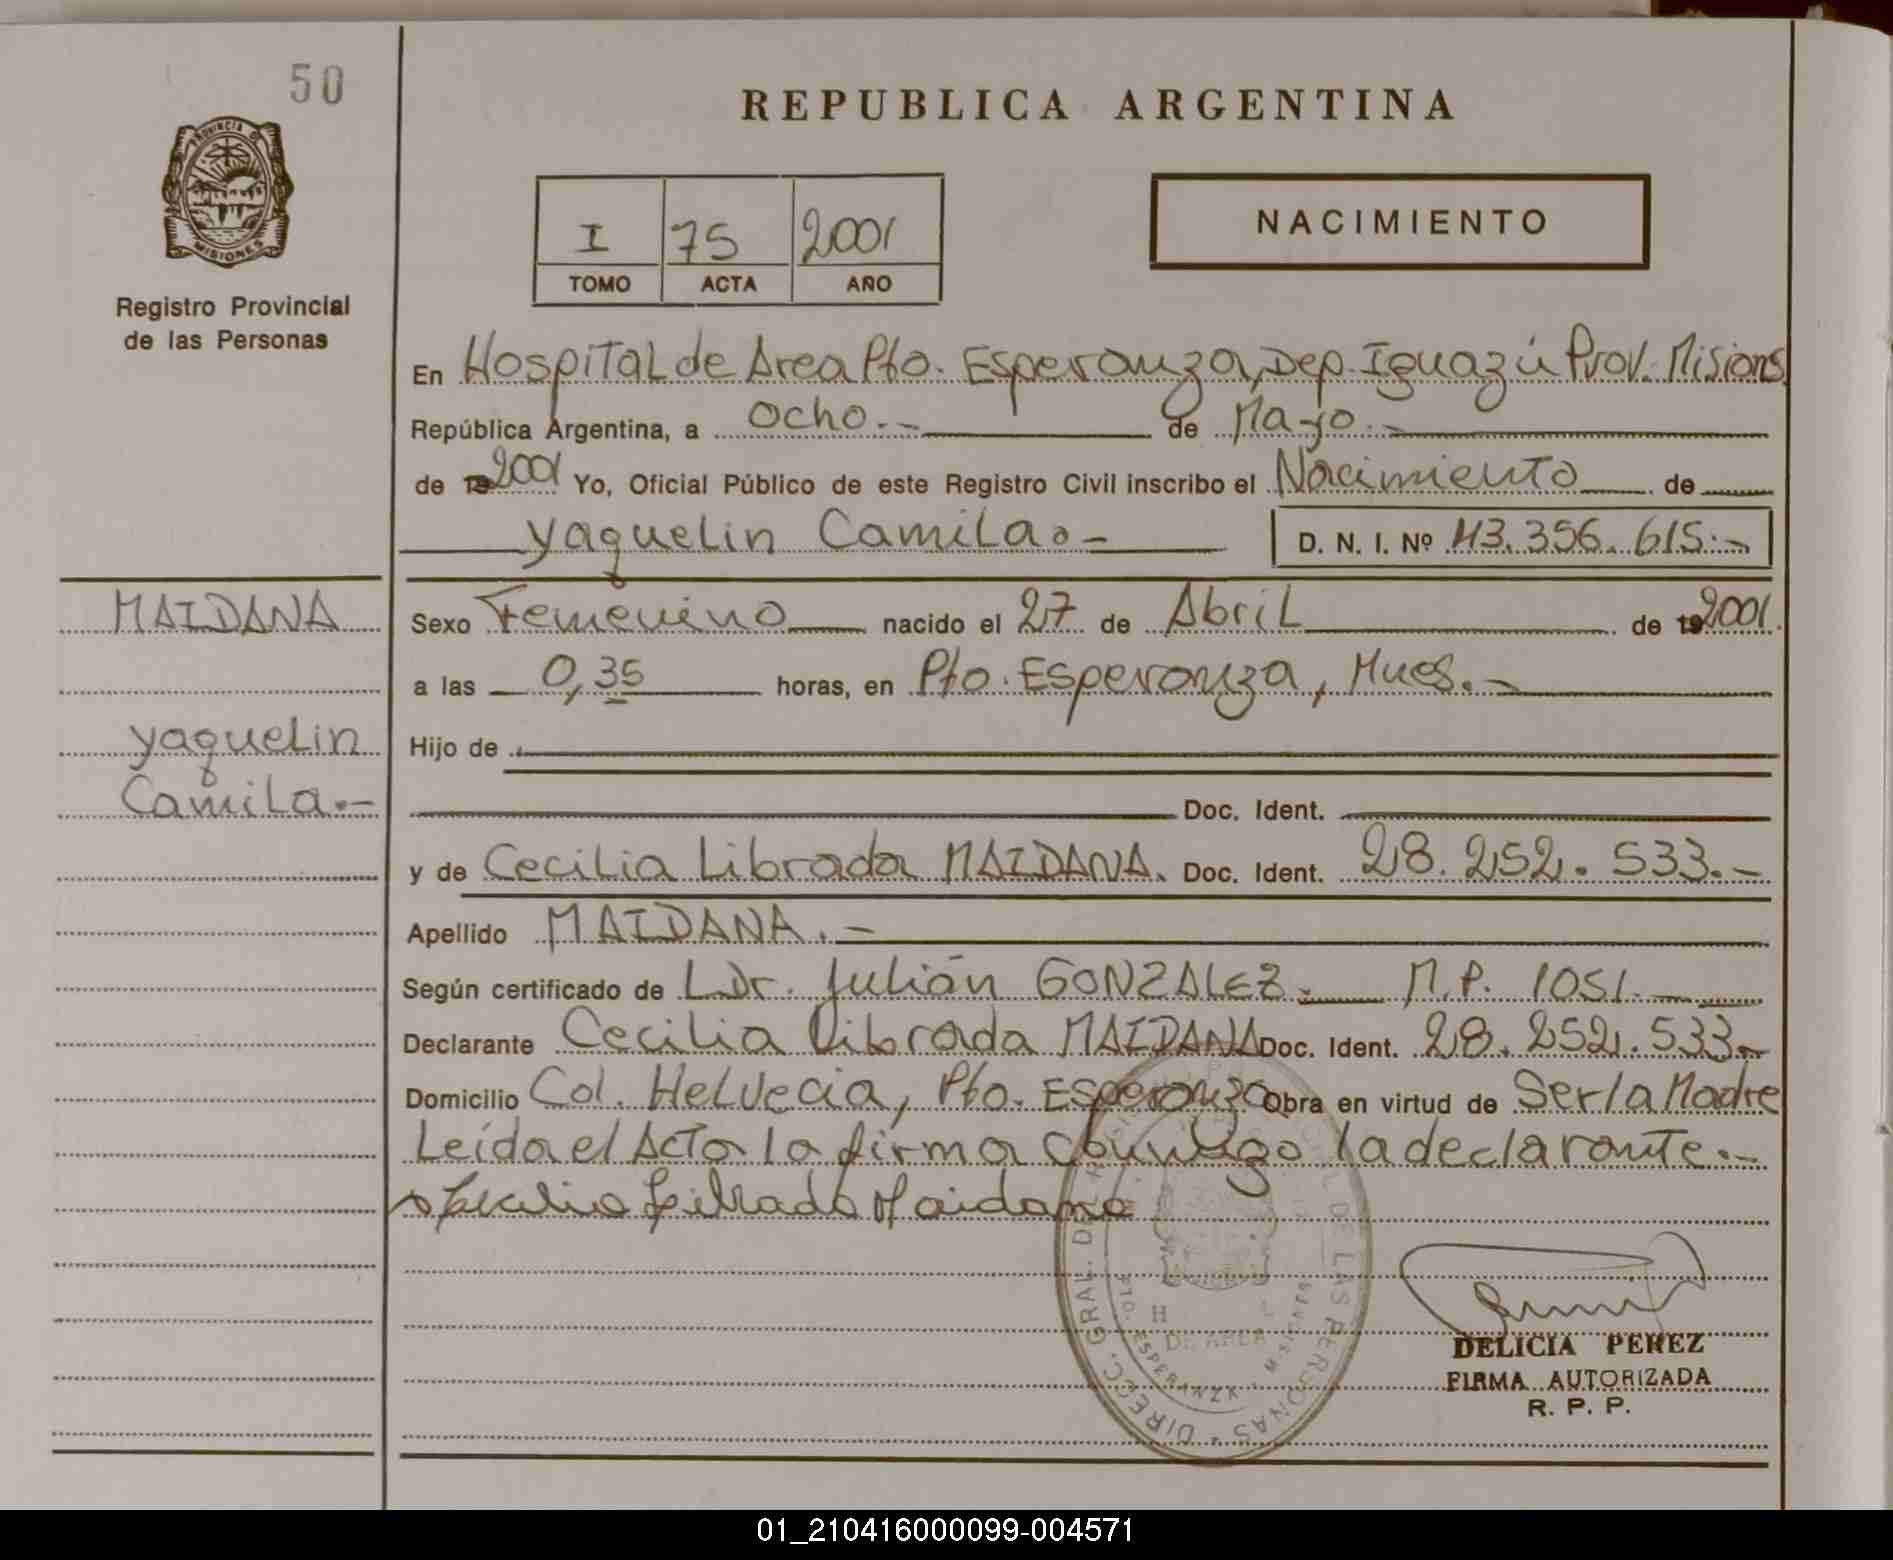 50
REPUBLICA ARGENTINA
PROVINCIA DE MISIONES
Registro Provincial
de las Personas
I 75 2001
TOMO ACTA AÑO
NACIMIENTO
En Hospital de Area Pto. Esperanza, Dep. Iguazú Prov. Misions
República Argentina, a ocho.- de Mayo.-
de 2001 Yo, Oficial Público de este Registro Civil inscribo el Nacimiento de
Yaquelin Camila.- D. N. I. Nº 43.356.615.-
MAIDANA
Yaquelin
Camila.-
Sexo Femenino nacido el 27 de Abril de 2001.
a las 0,35 horas, en Pto. Esperanza, Mnes.-
Hijo de
Doc. Ident.
y de Cecilia Librada MAIDANA. Doc. Ident. 28.252.533.-
Apellido MAIDANA.-
Según certificado de L Dr. Julián GONZALEZ. M.P. 1051.-
Declarante Cecilia Librada MAIDANA Doc. Ident. 28.252.533.-
Domicilio Col. Helvecia, Pto. Esperanza Obra en virtud de Ser la Madre
Leída el Acta la firma conmigo la declarante.-
Cecilia Librada Maidana
DIRECC. GRAL. DEL REGISTRO PROVINCIAL DE LAS PERSONAS
DE AREA
PTO. ESPERANZA - MISIONES
DELICIA PEREZ
FIRMA AUTORIZADA
R. P. P.
01_210416000099-004571